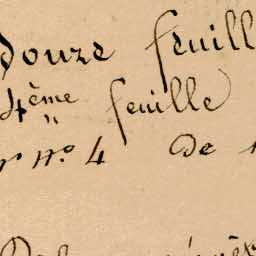 douze feuill
4ème feuille
"
nº 4 De